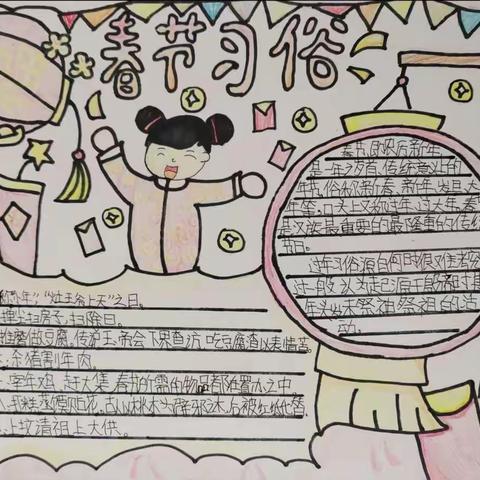 春节习俗
春节,即农历新年,
是一年之岁首、传统意义上的
年节。俗称新春、新年、岁旦、大
等,口头上又称过年、过大年。春
是汉族最重要的最隆重的传统
节日。
过年习俗源自何时很难考究
过一般认为起
年岁以来祭神祭祖的活
动。
小年”,“灶王爷上天”之日。
扫房子,扫除日。
推磨做豆腐,传说玉帝会下界查访,吃豆腐渣以表清苦。
杀猪割年肉。
宰年鸡、赶大集,春节所需的物品都在置办之中。
蒸馍贴花,古以桃木为辟邪之木,后被红纸代替。
上坟请祖上大供。